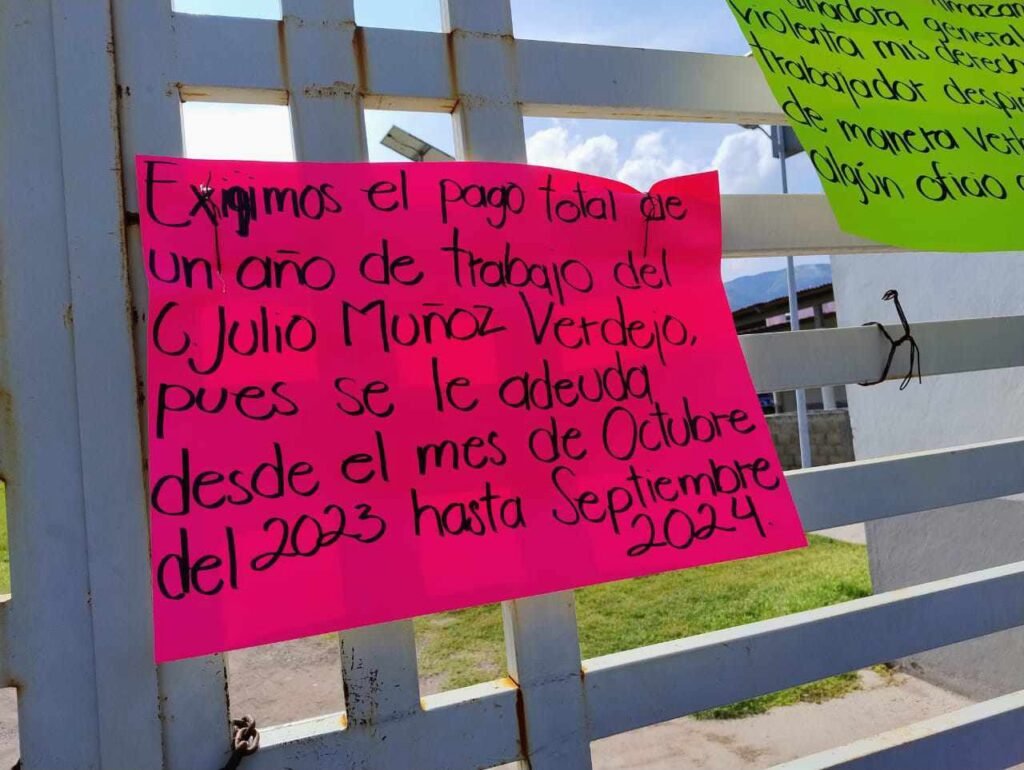 Exigimos el pago total de
un año de trabajo del
C Julio Muñoz Verdejo,
pues se le adeuda
desde el mes de Octubre
del 2023 hasta Septiembre
2024.
general
violenta mis
trabajador
de manera
algún oficio